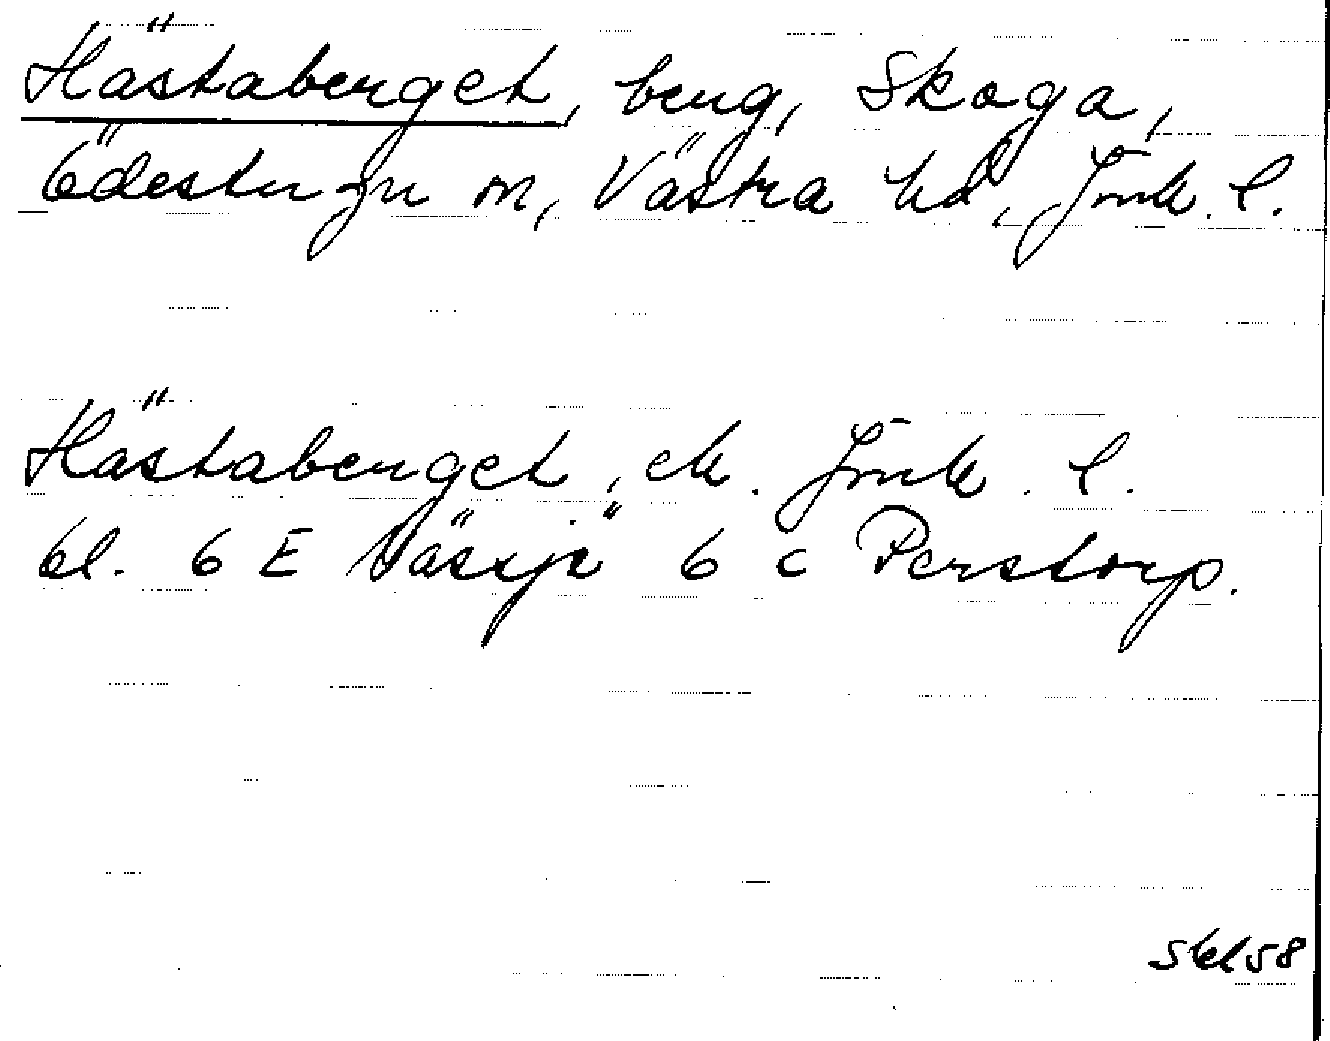 Hästaberget, berg, Skoga,
Bödestugu m, Västra hd, Jönk. l.
Hästaberget, ek. Jönk. l.
bl. 6 E Nässjö 6 c Perstorp.